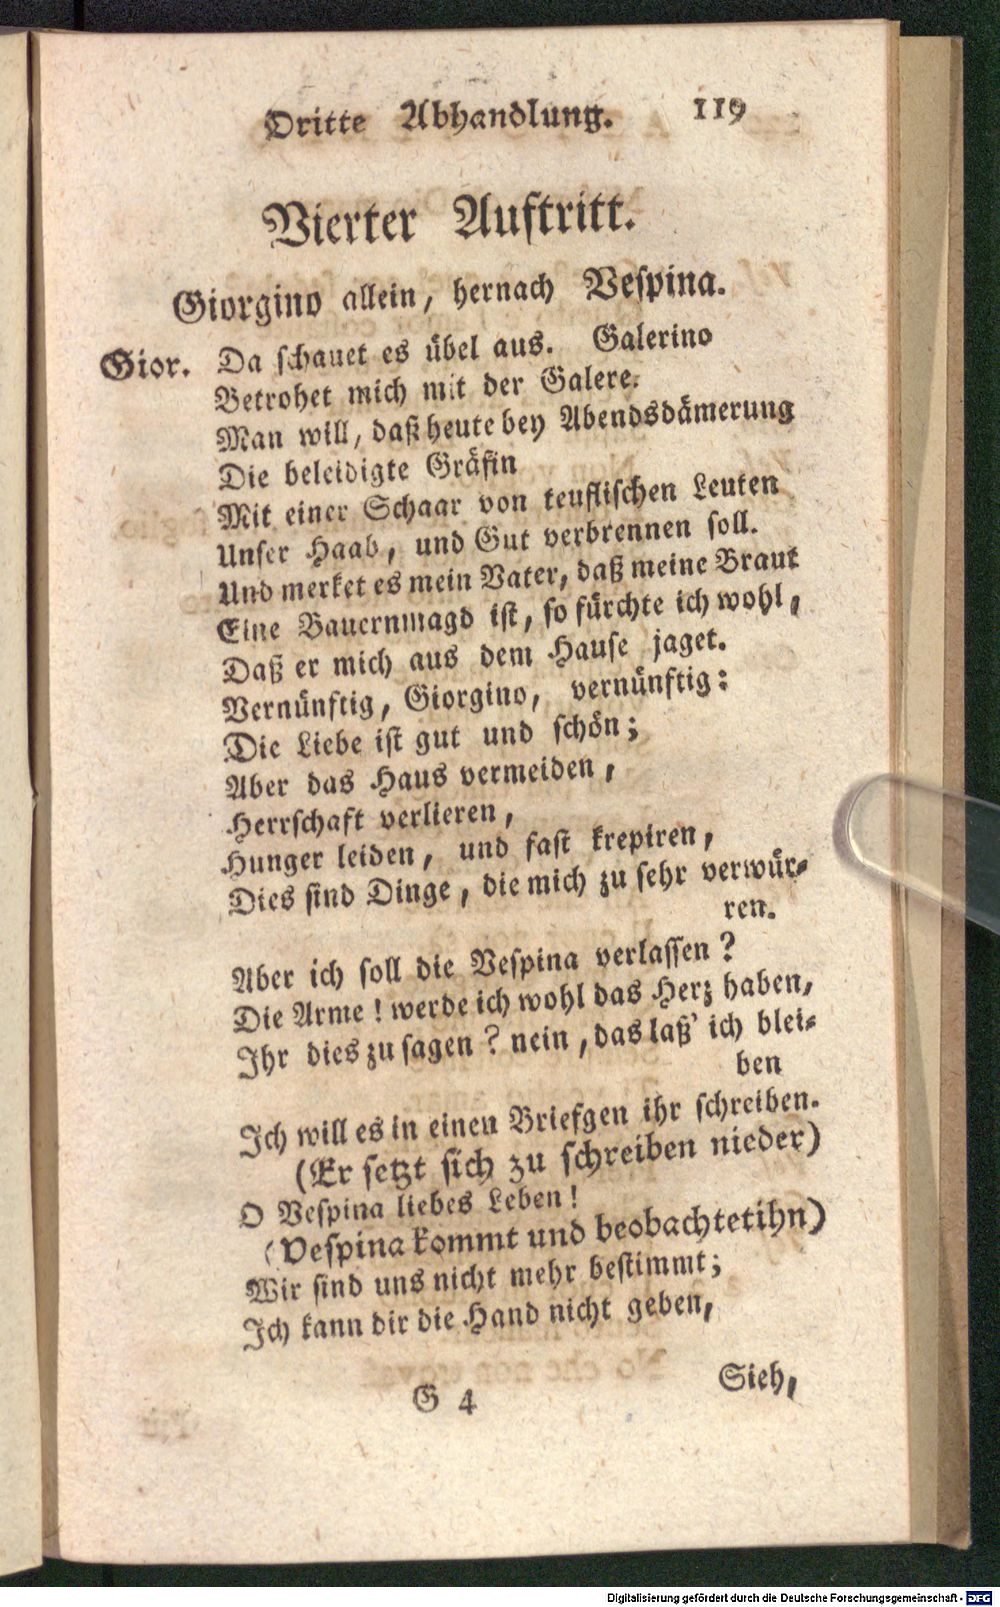 Dritte Abhandlung. 119
Vierter Auftritt.
Giorgino allein, hernach Vespina.
Gior. Da schauet es übel aus. Galerino
Betrohet mich mit der Galere.
Man will, daß heute bey Abendsdämerung
Die beleidigte Gräfin
Mit einer Schaar von teuflischen Leuten
Unser Haab, und Gut verbrennen soll.
Und merket es mein Vater, daß meine Braut
Eine Bauernmagd ist, so fürchte ich wohl,
Daß er mich aus dem Hause jaget.
Vernünftig, Giorgino, vernünftig:
Die Liebe ist gut und schön;
Aber das Haus vermeiden,
Herrschaft verlieren,
Hunger leiden, und fast krepiren,
Dies sind Dinge, die mich zu sehr verwür-
ren.
Aber ich soll die Vespina verlassen?
Die Arme! werde ich wohl das Herz haben,
Ihr dies zu sagen? nein, das laß' ich blei-
ben
Ich will es in einen Briefgen ihr schreiben.
(Er setzt sich zu schreiben nieder)
O Vespina liebes Leben!
(Vespina kommt und beobachtet ihn)
Wir sind uns nicht mehr bestimmt;
Ich kann dir die Hand nicht geben,
G 4 Sieh,
Digitalisierung gefördert durch die Deutsche Forschungsgemeinschaft - DFG